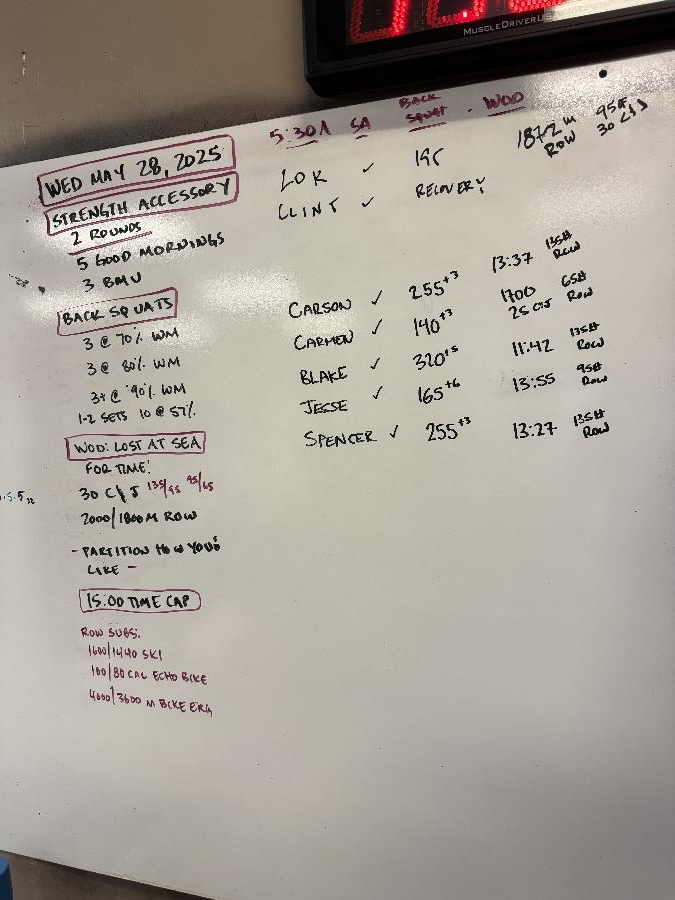 MUSCLEDRIVERUSA
WED MAY 28, 2025
STRENGTH ACCESSORY
2 ROUNDS
5 GOOD MORNINGS
3 BMU
BACK SQUATS
3 @ 70% WM
3 @ 80% WM
3+ @ 90% WM
1-2 SETS 10 @ 57%
WOD: LOST AT SEA
FOR TIME:
30 C&J 135/95 95/65
2000/1800M ROW
- PARTITION HOW YOU
LIKE -
15:00 TIME CAP
ROW SUBS:
1600/1440 SKI
100/80 CAL ECHO BIKE
4000/3600 M BIKE ERG
5:30A SA BACK SQUAT WOD
LOK ✓ 195 1872m ROW 95# 30 C&J
CLINT ✓ RECOVERY
CARSON ✓ 255+3 13:37 135# ROW
CARMEN ✓ 140+3 1700 25 C&J 65# ROW
BLAKE ✓ 320+5 11:42 135# ROW
JESSE ✓ 165+6 13:55 95# ROW
SPENCER ✓ 255+3 13:27 135# ROW